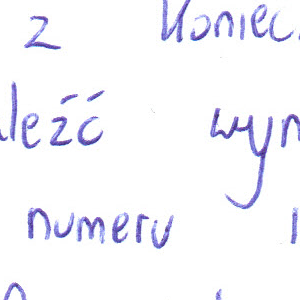 z Koniec
leźć wyn
numeru